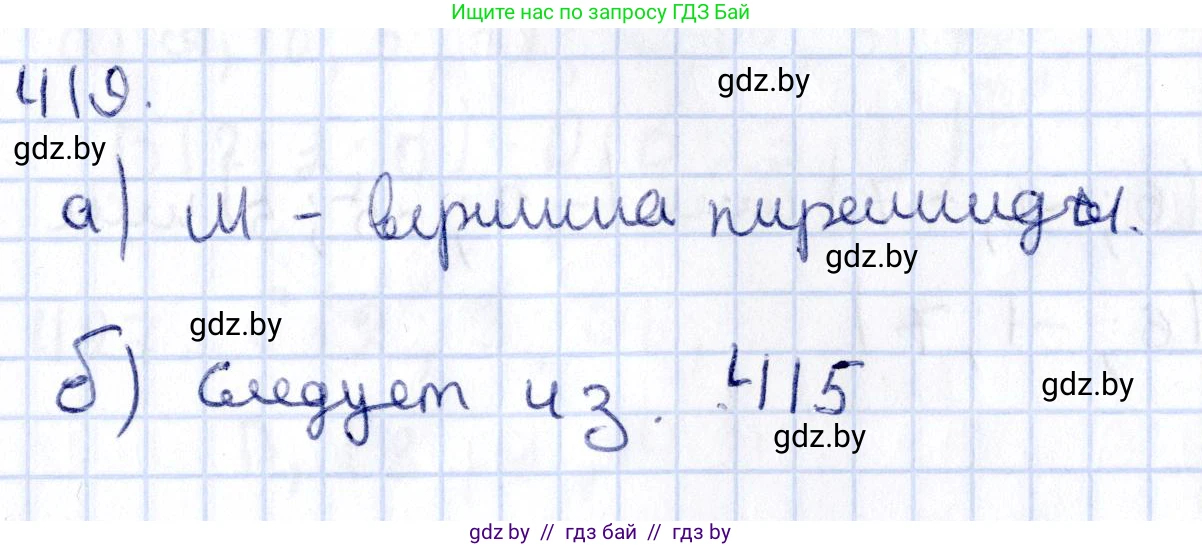 Ищите нас по запросу ГДЗ Бай
419.
gdz.by
gdz.by
а) М - вершина пирамиды.
gdz.by
gdz.by
б) Следует из. 415
gdz.by
gdz.by
gdz.by // гдз бай // гдз by